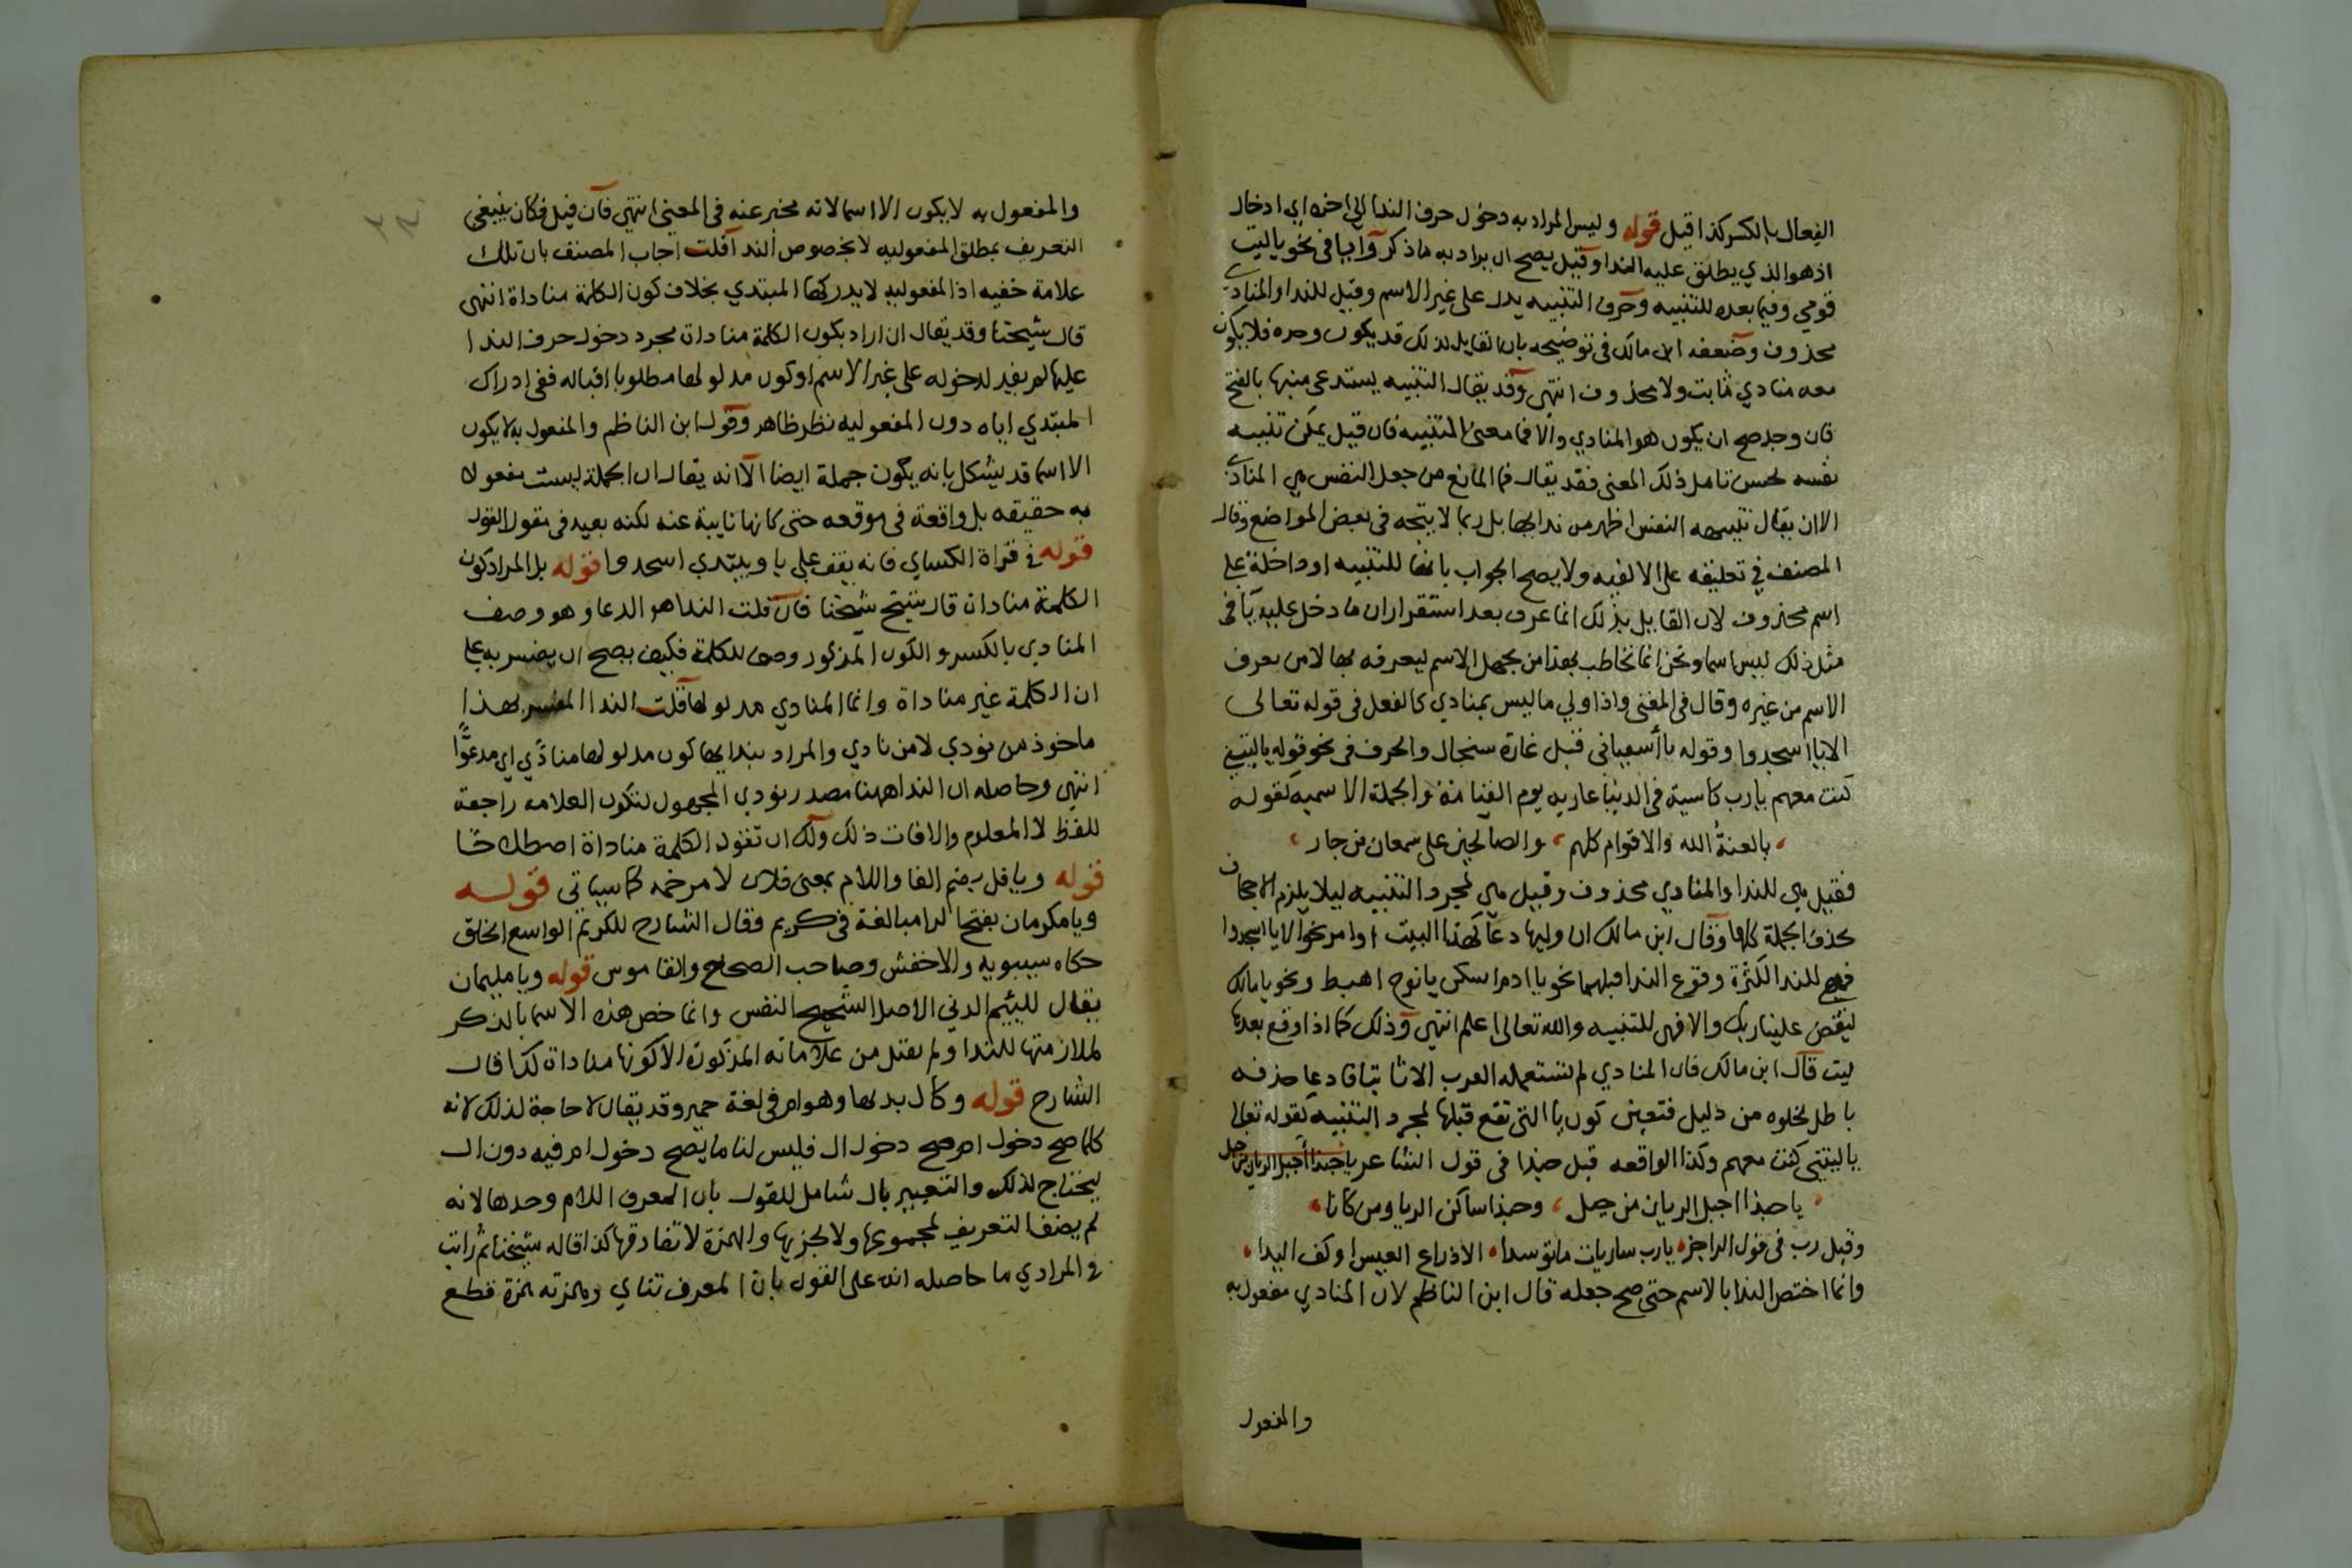 الفعال بالكسر كذا قيل قوله وليس المراد به دخول حرف الندا الى اخره اي ادخال
اذ هو الذي يطلق عليه الندا وقيل يصح ان يراد به ما ذكر وايا في نحو ياليت
قومي وفيما بعده للتنبيه وحرف التنبيه يدل على غير الاسم وقيل للندا والمنادي
محذوف وضعفه ابن مالك في توضيحه بان القايل لذلك قد يكون وحده فلا يكون
معه منادي ثابت ولا محذوف انتهى وقد يقال التنبيه يستدعي منبها بالفتح
فان وجد صح ان يكون هو المنادي والا فما معنى التنبيه فان قيل يمكن تنبيه
نفسه لحسن تامل ذلك المعنى فقد يقال فما المانع من جعل النفس هي المنادي
الا ان يقال تنبيهه النفس اظهر من ندايها بل ربما لا يتجه في بعض المواضع وقال
المصنف في تعليقه على الالفيه ولا يصح الجواب بانها للتنبيه او داخلة على
اسم محذوف لان القايل بذلك انما عرف بعد استقرار ان ما دخل عليه يا في
مثل ذلك ليس اسما ونحن انما نخاطب بهذا من يجهل الاسم ليعرفه بها لا من يعرف
الاسم من غيره وقال في المغني واذا ولي ما ليس بمنادي كالفعل في قوله تعالى
الا يا اسجدوا وقوله يا أسقياني قبل غارة سنجال والحرف في نحو قوله ياليتني
كنت معهم يا رب كاسية في الدنيا عارية يوم القيامة والجملة الاسميه كقوله
يا لعنةُ الله والاقوام كلهم والصالحين على سمعان من جار
فقيل هي للندا والمنادي محذوف وقيل هي لمجرد التنبيه ليلا يلزم الاجحاف
بحذف الجملة كلها وقال ابن مالك ان وليها دعا كهذا البيت او امر نحو الا يا اسجدوا
فهي للندا لكثرة وقوع الندا قبلهما نحو يا ادم اسكن يا نوح اهبط ونحو يا مالك
ليقض علينا ربك والا فهي للتنبيه والله تعالى اعلم انتهى وذلك كما اذا وقع بعدها
ليت قال ابن مالك فان المنادي لم تستعمله العرب الا ثابتا فادعا حذفه
باطل لخلوه من دليل فتعين كون يا التي تقع قبلها لمجرد التنبيه كقوله تعالى
ياليتني كنت معهم وكذا الواقعه قبل حبذا في قول الشاعر يا حبذا أجبل الريان من جبل
يا حبذا اجبل الريان من جبل وحبذا ساكن الريان من كانا
وقبل رب في قول الراجز يا رب ساريات ما توسدا الا ذراع العيس او كف اليدا
وانما اختص الندا بالاسم حتى صح جعله قال ابن الناظم لان المنادي مفعول به
والمفعول
والمفعول به لا يكون الا اسما لانه مخبر عنه في المعنى انتهى فان قيل فكان ينبغي
التعريف بمطلق المفعوليه لا بخصوص الندا قلت اجاب المصنف بان تلك
علامة خفيه اذ المفعوليه لا يدركها المبتدي بخلاف كون الكلمة مناداة انتهى
قال شيخنا وقد يقال ان اراد بكون الكلمة مناداة مجرد دخول حرف الندا
عليها لم يفيد لدخوله على غير الاسم او كون مدلولها مطلوبا اقباله ففي ادراك
المبتدي اياه دون المفعوليه نظر ظاهر وقول ابن الناظم والمفعول به لا يكون
الا اسما قد يشكل بانه يكون جملة ايضا الا انه يقال ان الجملة ليست مفعولا
به حقيقه بل واقعة في موقعه حتى كانها نايبة عنه لكنه بعيد في مقول القول
قوله في قراة الكساي فانه يقف على يا ويبتدي اسجدوا قوله بل المراد كون
الكلمة مناداة قال شيخ شيخنا فان قلت الندا هو الدعا وهو وصف
المنادي بالكسر والكون المذكور وصف للكلمة فكيف يصح ان يفسر به على
ان الكلمة غير مناداة وانما المنادي مدلولها قلت الندا المفسر بهذا
ماخوذ من نودي لا من نادي والمراد بندايها كون مدلولها منادًي اي مدعوًّا
انتهى وحاصله ان الندا ههنا مصدر نودي المجهول لتكون العلامه راجعة
للفظ لا المعلوم والا فات ذلك ولك ان تقول الكلمة مناداة اصطلاحا
قوله ويا فل بضم الفا واللام بمعنى فلان لا مرخمه كما سياتي قوله
ويا مكرمان بفتح الرا مبالغة في كريم وقال الشارح للكريم الواسع الخلق
حكاه سيبويه والاخفش وصاحب الصحاح والقاموس قوله ويا مليمان
يقال للييم الدني الاصل الشحيح النفس وانما خص هذه الاسما بالذكر
لملازمتها للندا ولم يقتل من علاماته المذكورة الا كونها مناداة كذا قال
الشارح قوله وكال بدلها وهو ام في لغة حمير وقد يقال لا حاجة لذلك لانه
كلما صح دخول ام صح دخول ال فليس لنا ما يصح دخول ام فيه دون ال
ليحتاج لذلك والتعبير بال شامل للقول بان المعرف اللام وحدها لانه
لم يضف التعريف لمجموعها ولا لجزيها والهمزة لا تفارقها كذا قاله شيخنا ثم رايت
في المرادي ما حاصله انه على القول بان المعرف ثناي وهمزته همزة قطع